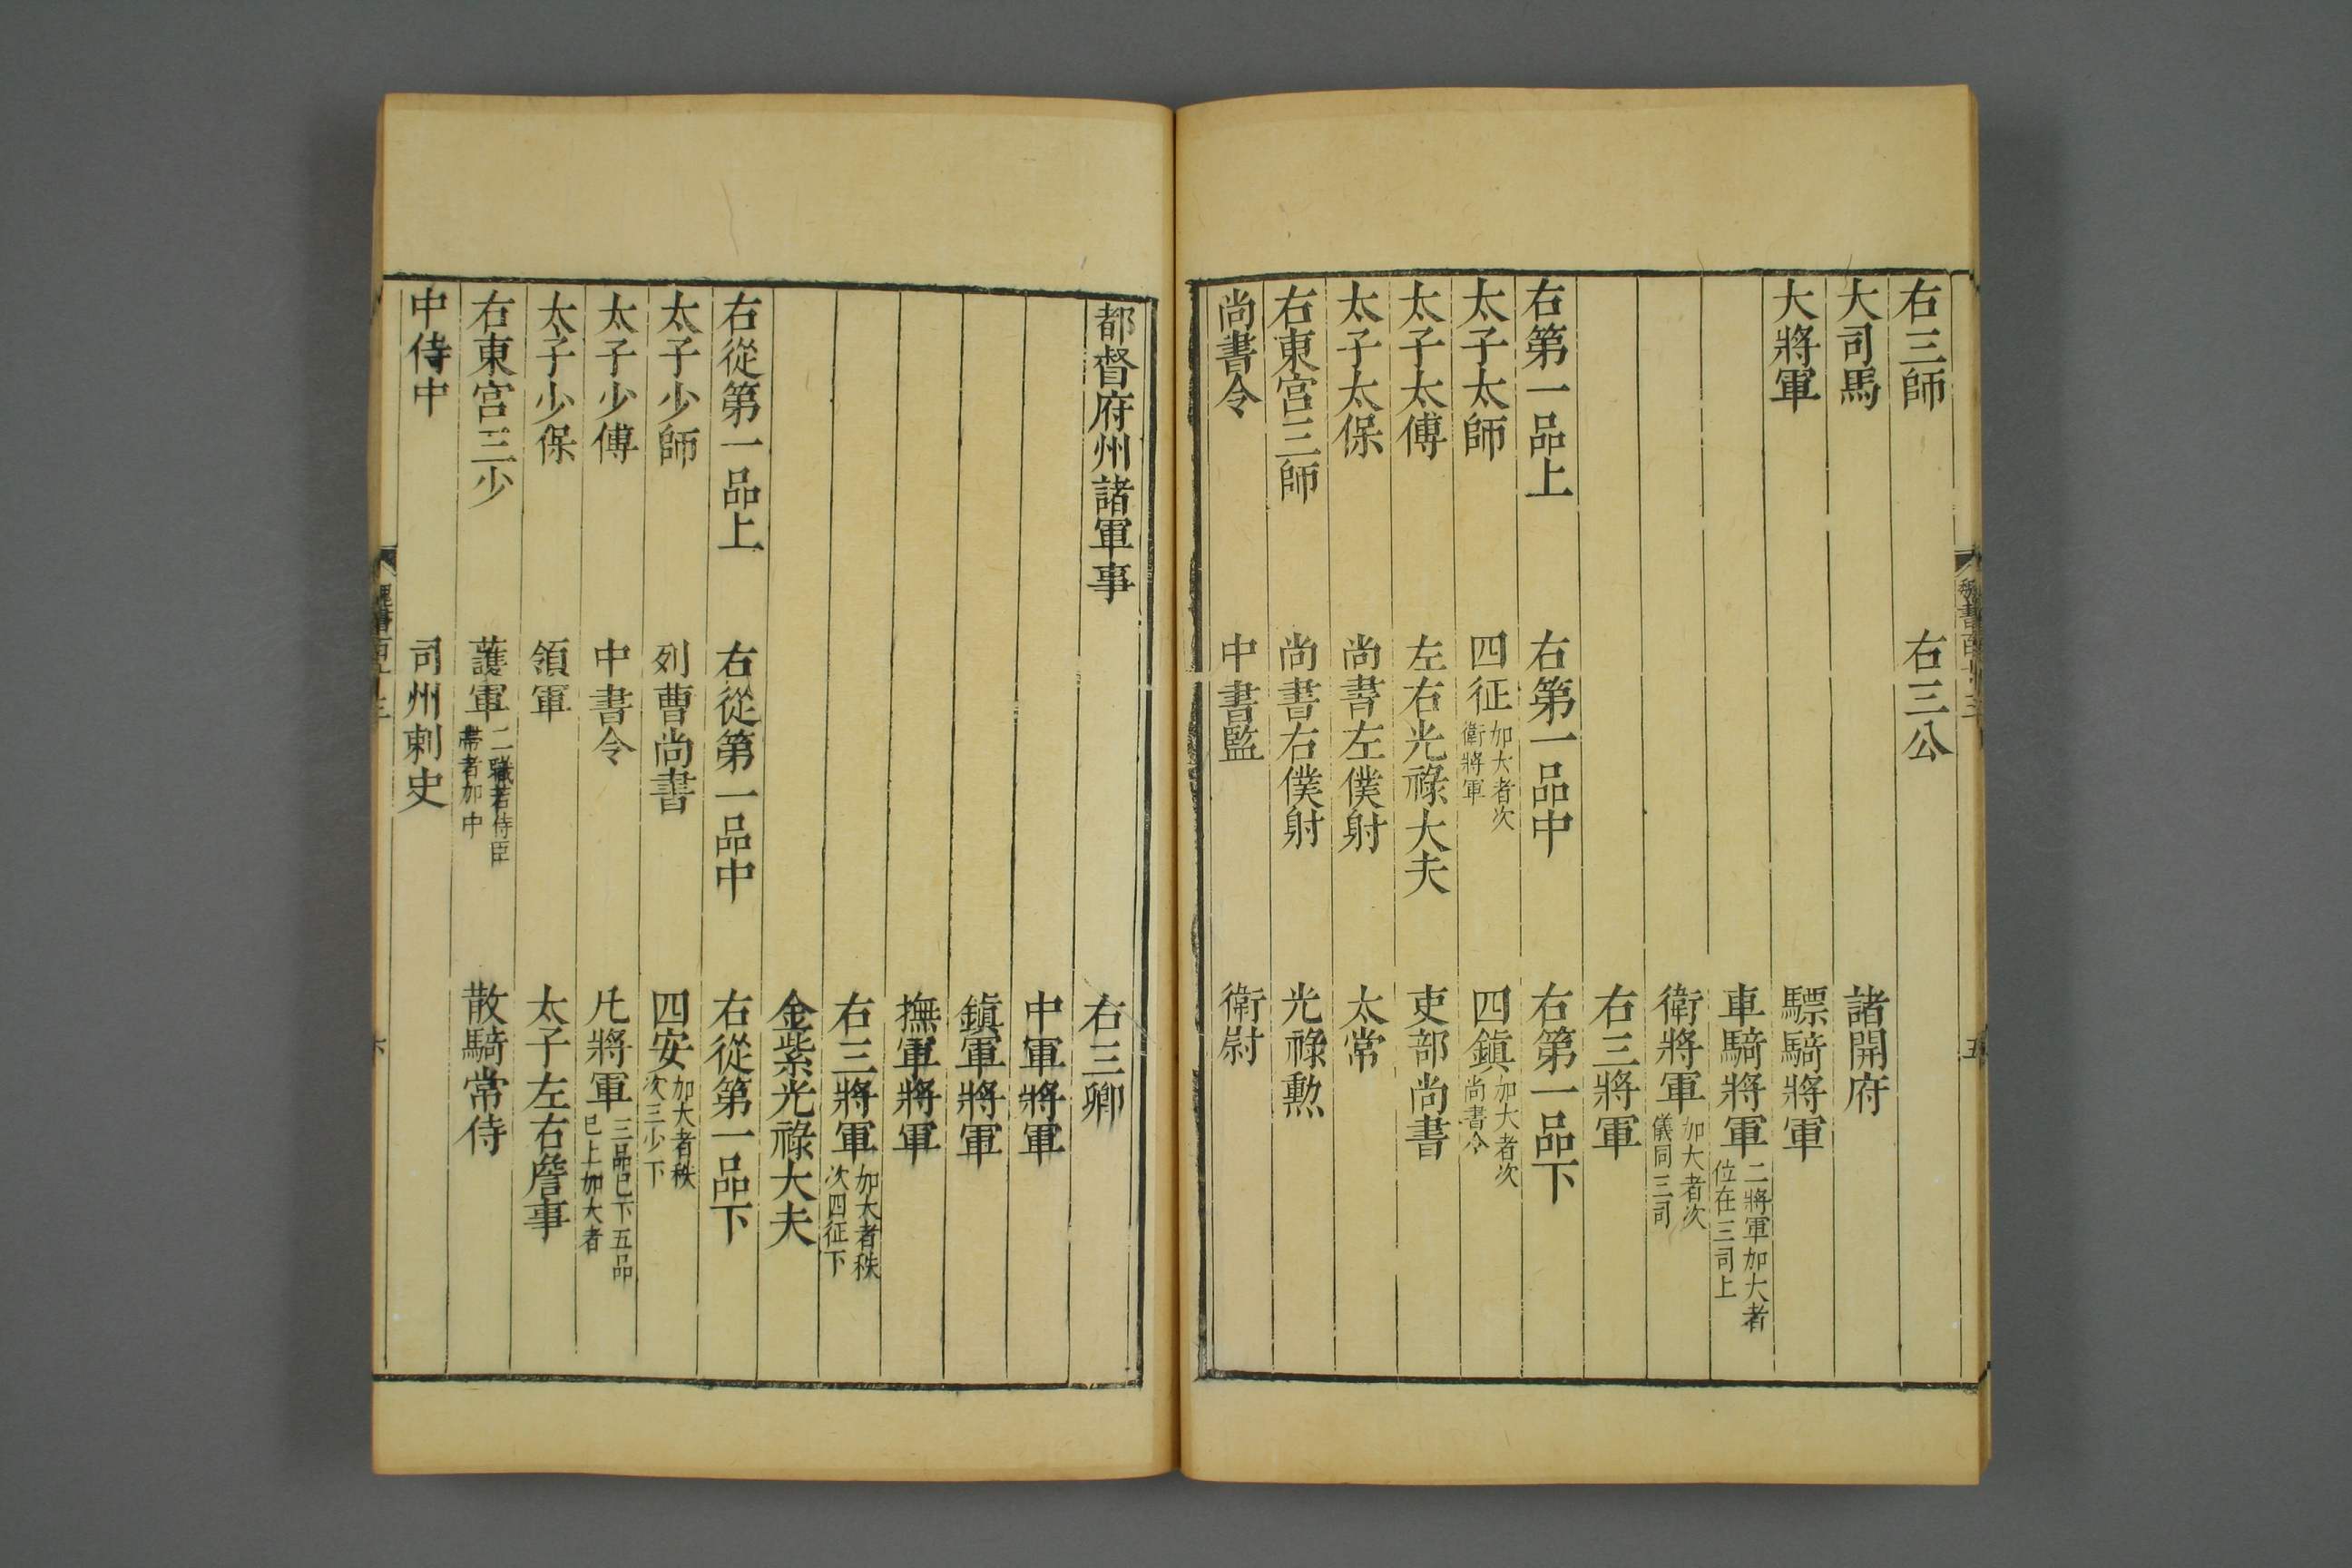 右三師 右三公
大司馬 諸開府
大將軍 驃騎將軍
車騎將軍 二將軍加大者位在三司上
衛將軍 加大者次儀同三司
右三將軍
右第一品上 右第一品中 右第一品下
太子太師 四征 加大者次衛將軍 四鎮 加大者次尚書令
太子太傅 左右光祿大夫 吏部尚書
太子太保 尚書左僕射 太常
右東宮三師 尚書右僕射 光祿勲
尚書令 中書監 衛尉
都督府州諸軍事 右三卿
中軍將軍
鎮軍將軍
撫軍將軍
右三將軍 加大者秩次四征下
金紫光祿大夫
右從第一品上 右從第一品中 右從第一品下
太子少師 列曹尚書 四安 加大者秩次三少下
太子少傅 中書令 凡將軍 三品已下五品已上加大者
太子少保 領軍 太子左右詹事
右東宮三少 護軍 二職若侍臣帶者加中 散騎常侍
中侍中 司州刺史